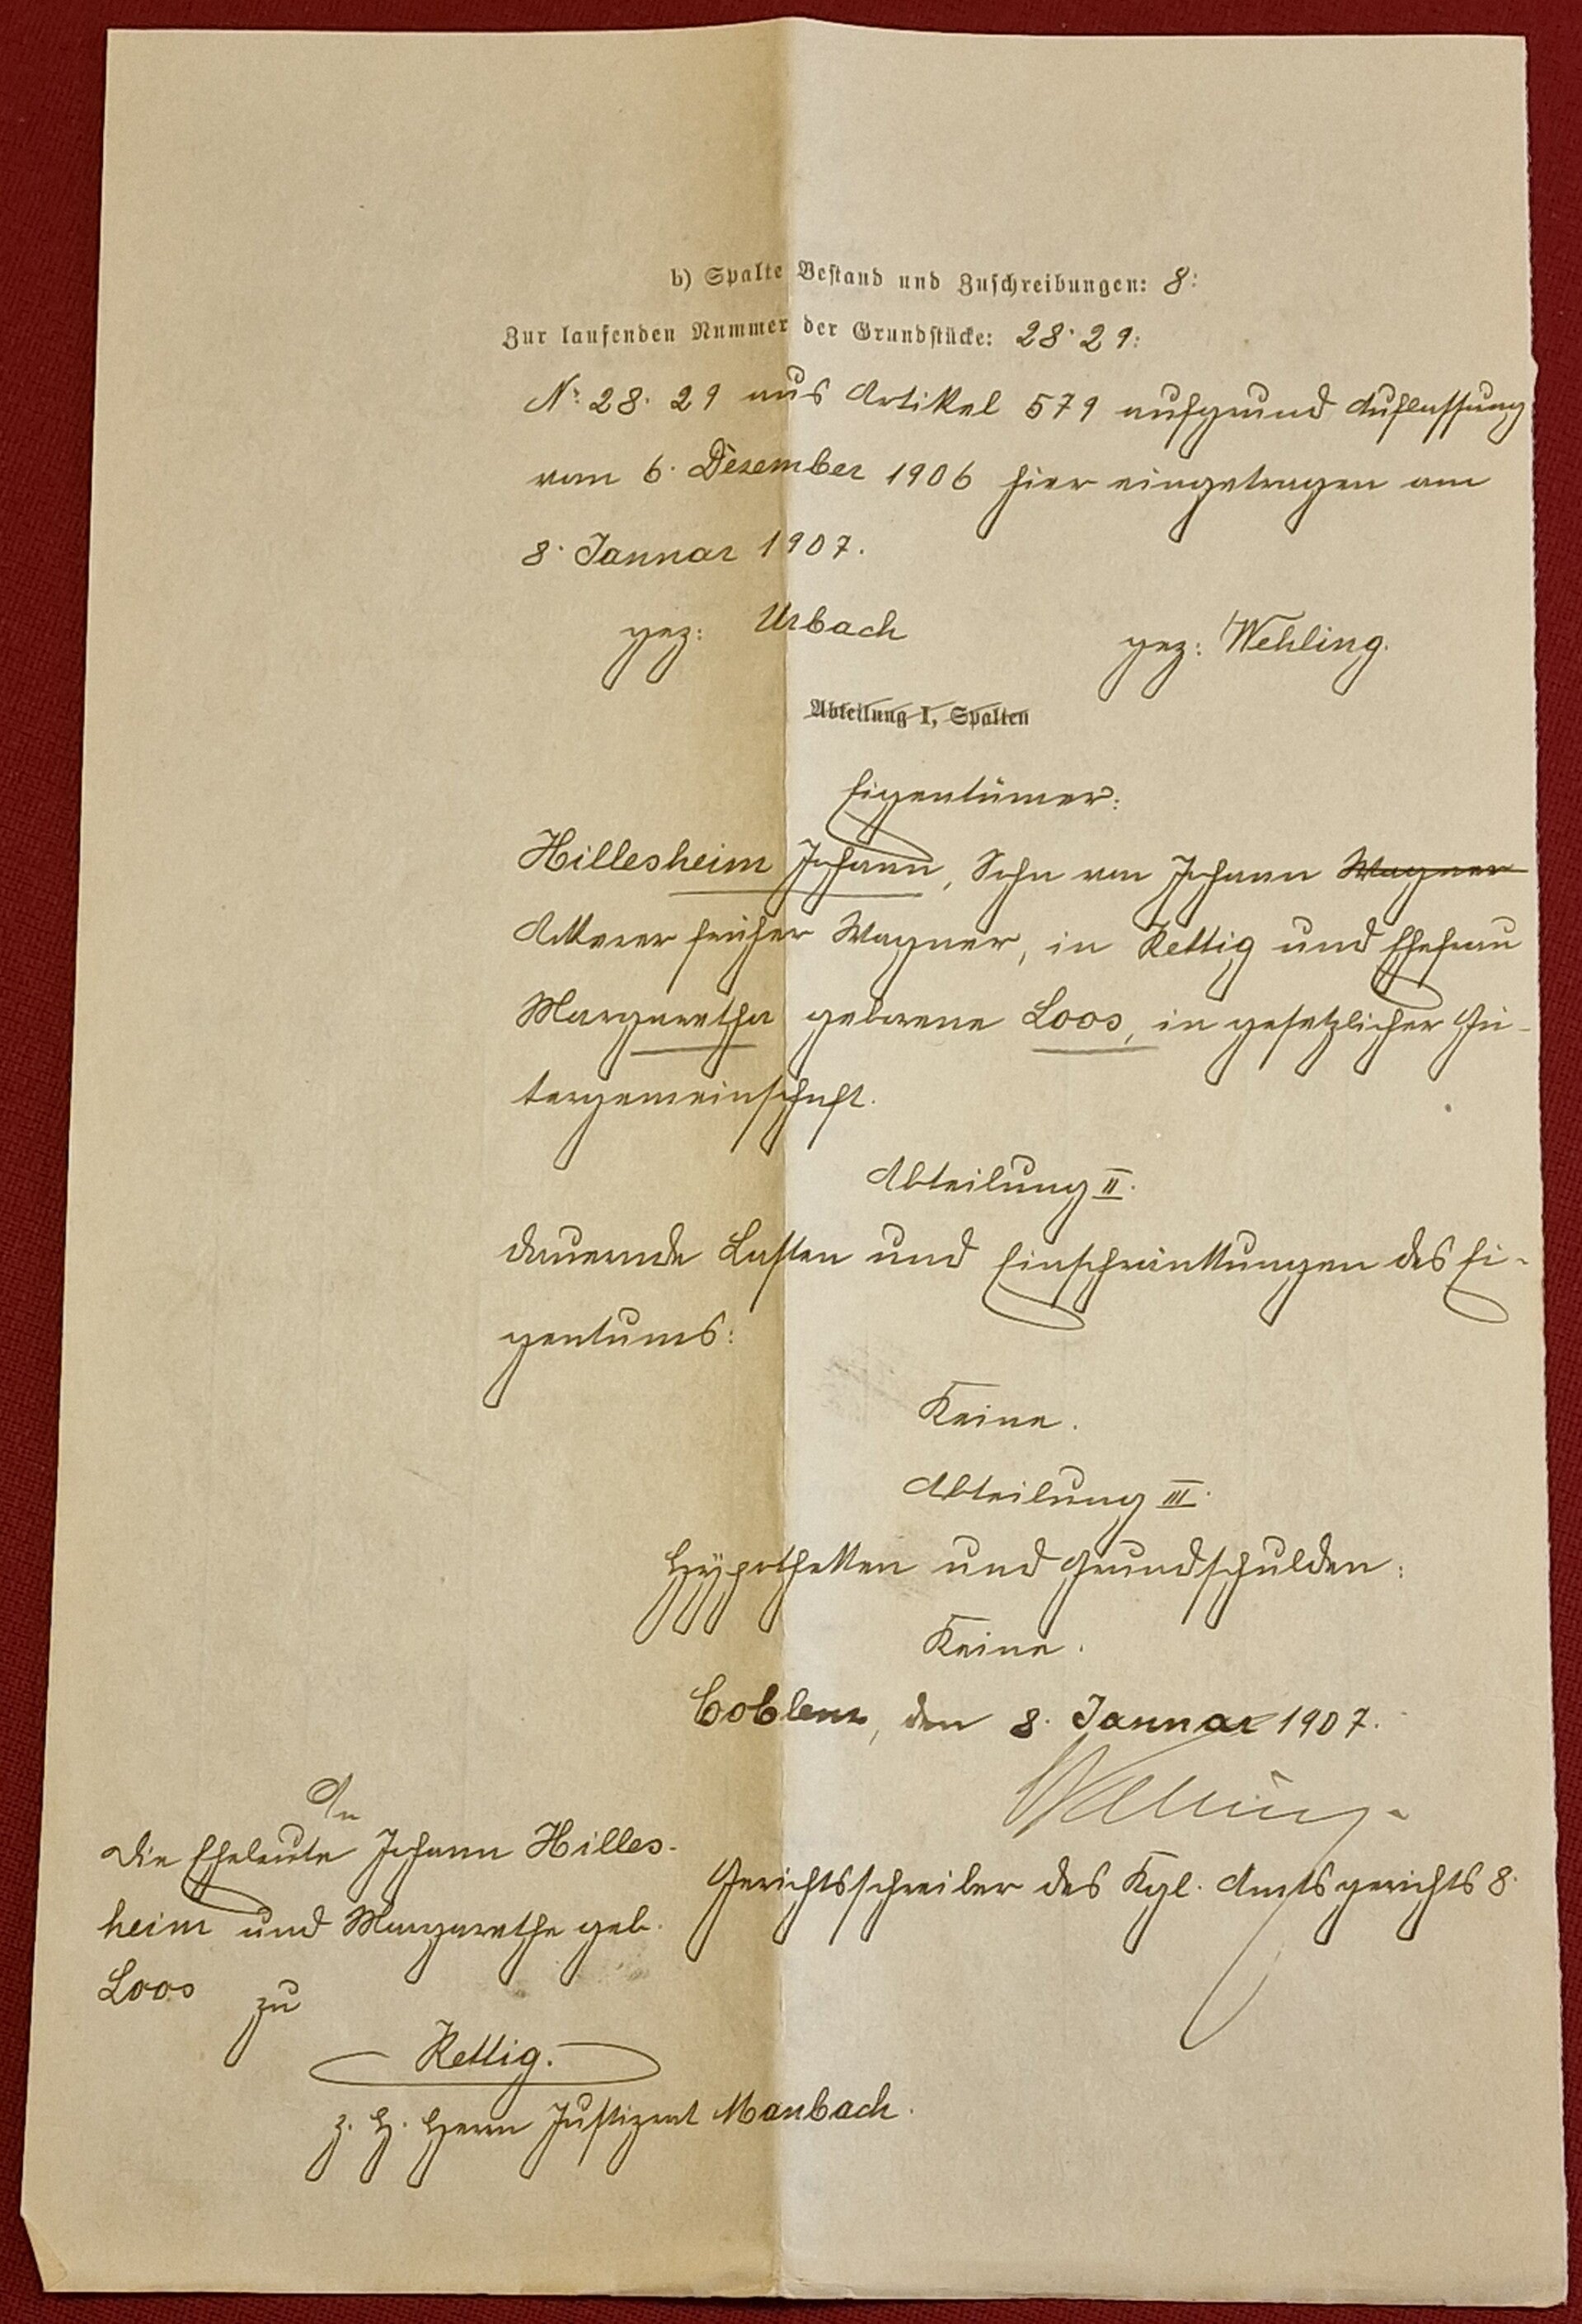 b) Spalte Bestand und Zuschreibungen: 8:
Zur laufenden Nummer der Grundstücke: 28. 29:
No: 28. 29 aus Artikel 579 aufgrund Auflassung
vom 6. Dezember 1906 hier eingetragen am
8. Januar 1907.
gez: Urbach gez: Wehling.
Abteilung I, Spalten
Eigentümer:
Hillesheim Johann, Sohn von Johann Wagner
Ackerer früher Wagner, in Kettig und Ehefrau
Margaretha geborene Loos, in gesetzlicher Gü-
tergemeinschaft.
Abteilung II.
dauernde Lasten und Einschränkungen des Ei-
gentums:
Keine.
Abteilung III.
Hypotheken und Grundschulden:
Keine.
Coblenz, den 8. Januar 1907.
Wehling
Gerichtsschreiber des Kgl. Amtsgerichts 8.
An
die Eheleute Johann Hilles-
heim und Margarethe geb.
Loos zu
Kettig.
z. H. Herrn Justizrat Maubach.